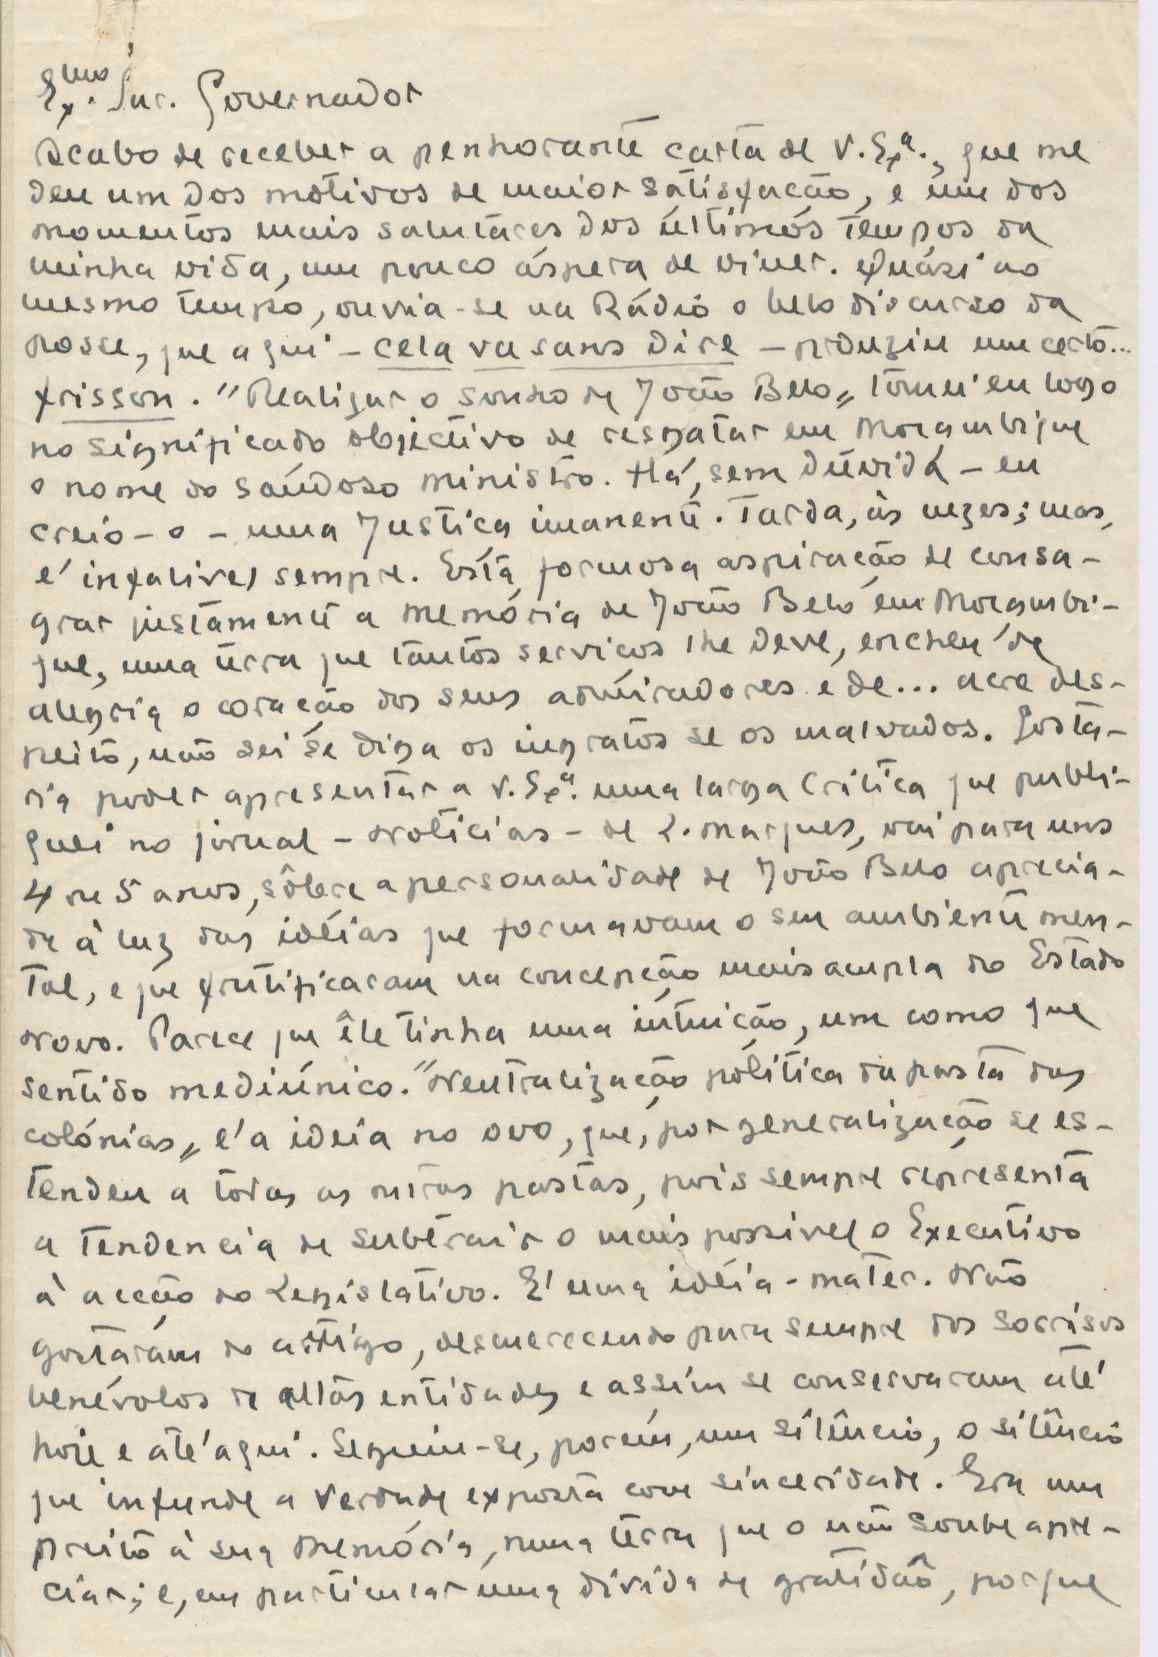 Ex.mo Snr. Governador
Acabo de receber a penhorante carta de V. Exª., que me
deu um dos motivos de maior satisfação, e um dos
momentos mais salutares dos últimos tempos da
minha vida, um pouco áspera de viver. Quási ao
mesmo tempo, ouvia-se na Rádio o belo discurso da
posse, que aqui - cela va sans dire - produziu um certo...
frisson. "Realizar o sonho de João Belo" tomei eu logo
no significado objectivo de resgatar em Moçambique
o nome do saúdoso ministro. Há, sem dúvida - eu
creio-o - uma Justiça imanente. Tarda, às vezes; mas,
é infalivel sempre. Esta formosa aspiração de consa-
grar justamente a memória de João Belo em Moçambi-
que, uma terra que tantos serviços lhe deve, encheu de
alegria o coração dos seus admiradores e de... acre des-
peito, não sei se diga os ingratos se os malvados. Gosta-
ria poder apresentar a V. Exª. uma larga crítica que publi-
quei no jornal - Noticias - de L. Marques, vai para uns
4 ou 5 anos, sôbre a personalidade de João Belo aprecia-
da à luz das idéias que formavam o seu ambiente men-
tal, e que frutificaram na concepção mais ampla do Estado
Novo. Parece que êle tinha uma intuição, um como que
sentido mediúnico. "Neutralização política da pasta das
colónias" é a ideia no ovo, que, por generalização se es-
tendeu a todas as outras pastas, pois sempre representa
a tendencia de subtrair o mais possivel o Executivo
à acção do Legislativo. É uma idéia-mater. Não
gostaram do artigo, desmerecendo para sempre dos sorrisos
benévolos de altas entidades e assim se conservaram até
hoje e até aqui. Seguiu-se, porém, um silêncio, o silêncio
que infunde a Verdade exposta com sinceridade. Era um
preito à sua memória, numa terra que o não soube apre-
ciar; e, em particular uma dívida de gratidão, porque